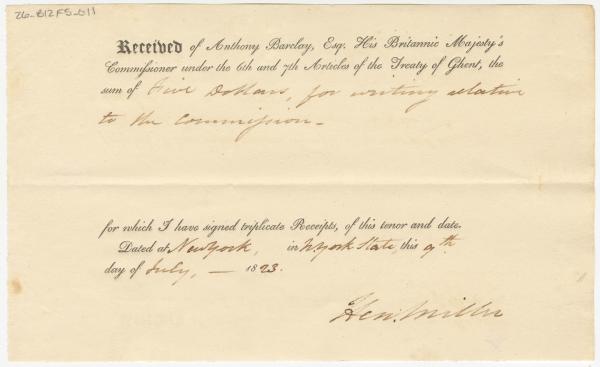 26-B12F5-011
Received of Anthony Barclay, Esq. His Britannic Majesty's
Commissioner under the 6th and 7th Articles of the Treaty of Ghent, the
sum of Five Dollars, for writing relative
to the Commission—
for which I have signed triplicate Receipts, of this tenor and date.
Dated at New York, in N York State, this 9th
day of July, — 1823.
Hen. Miller